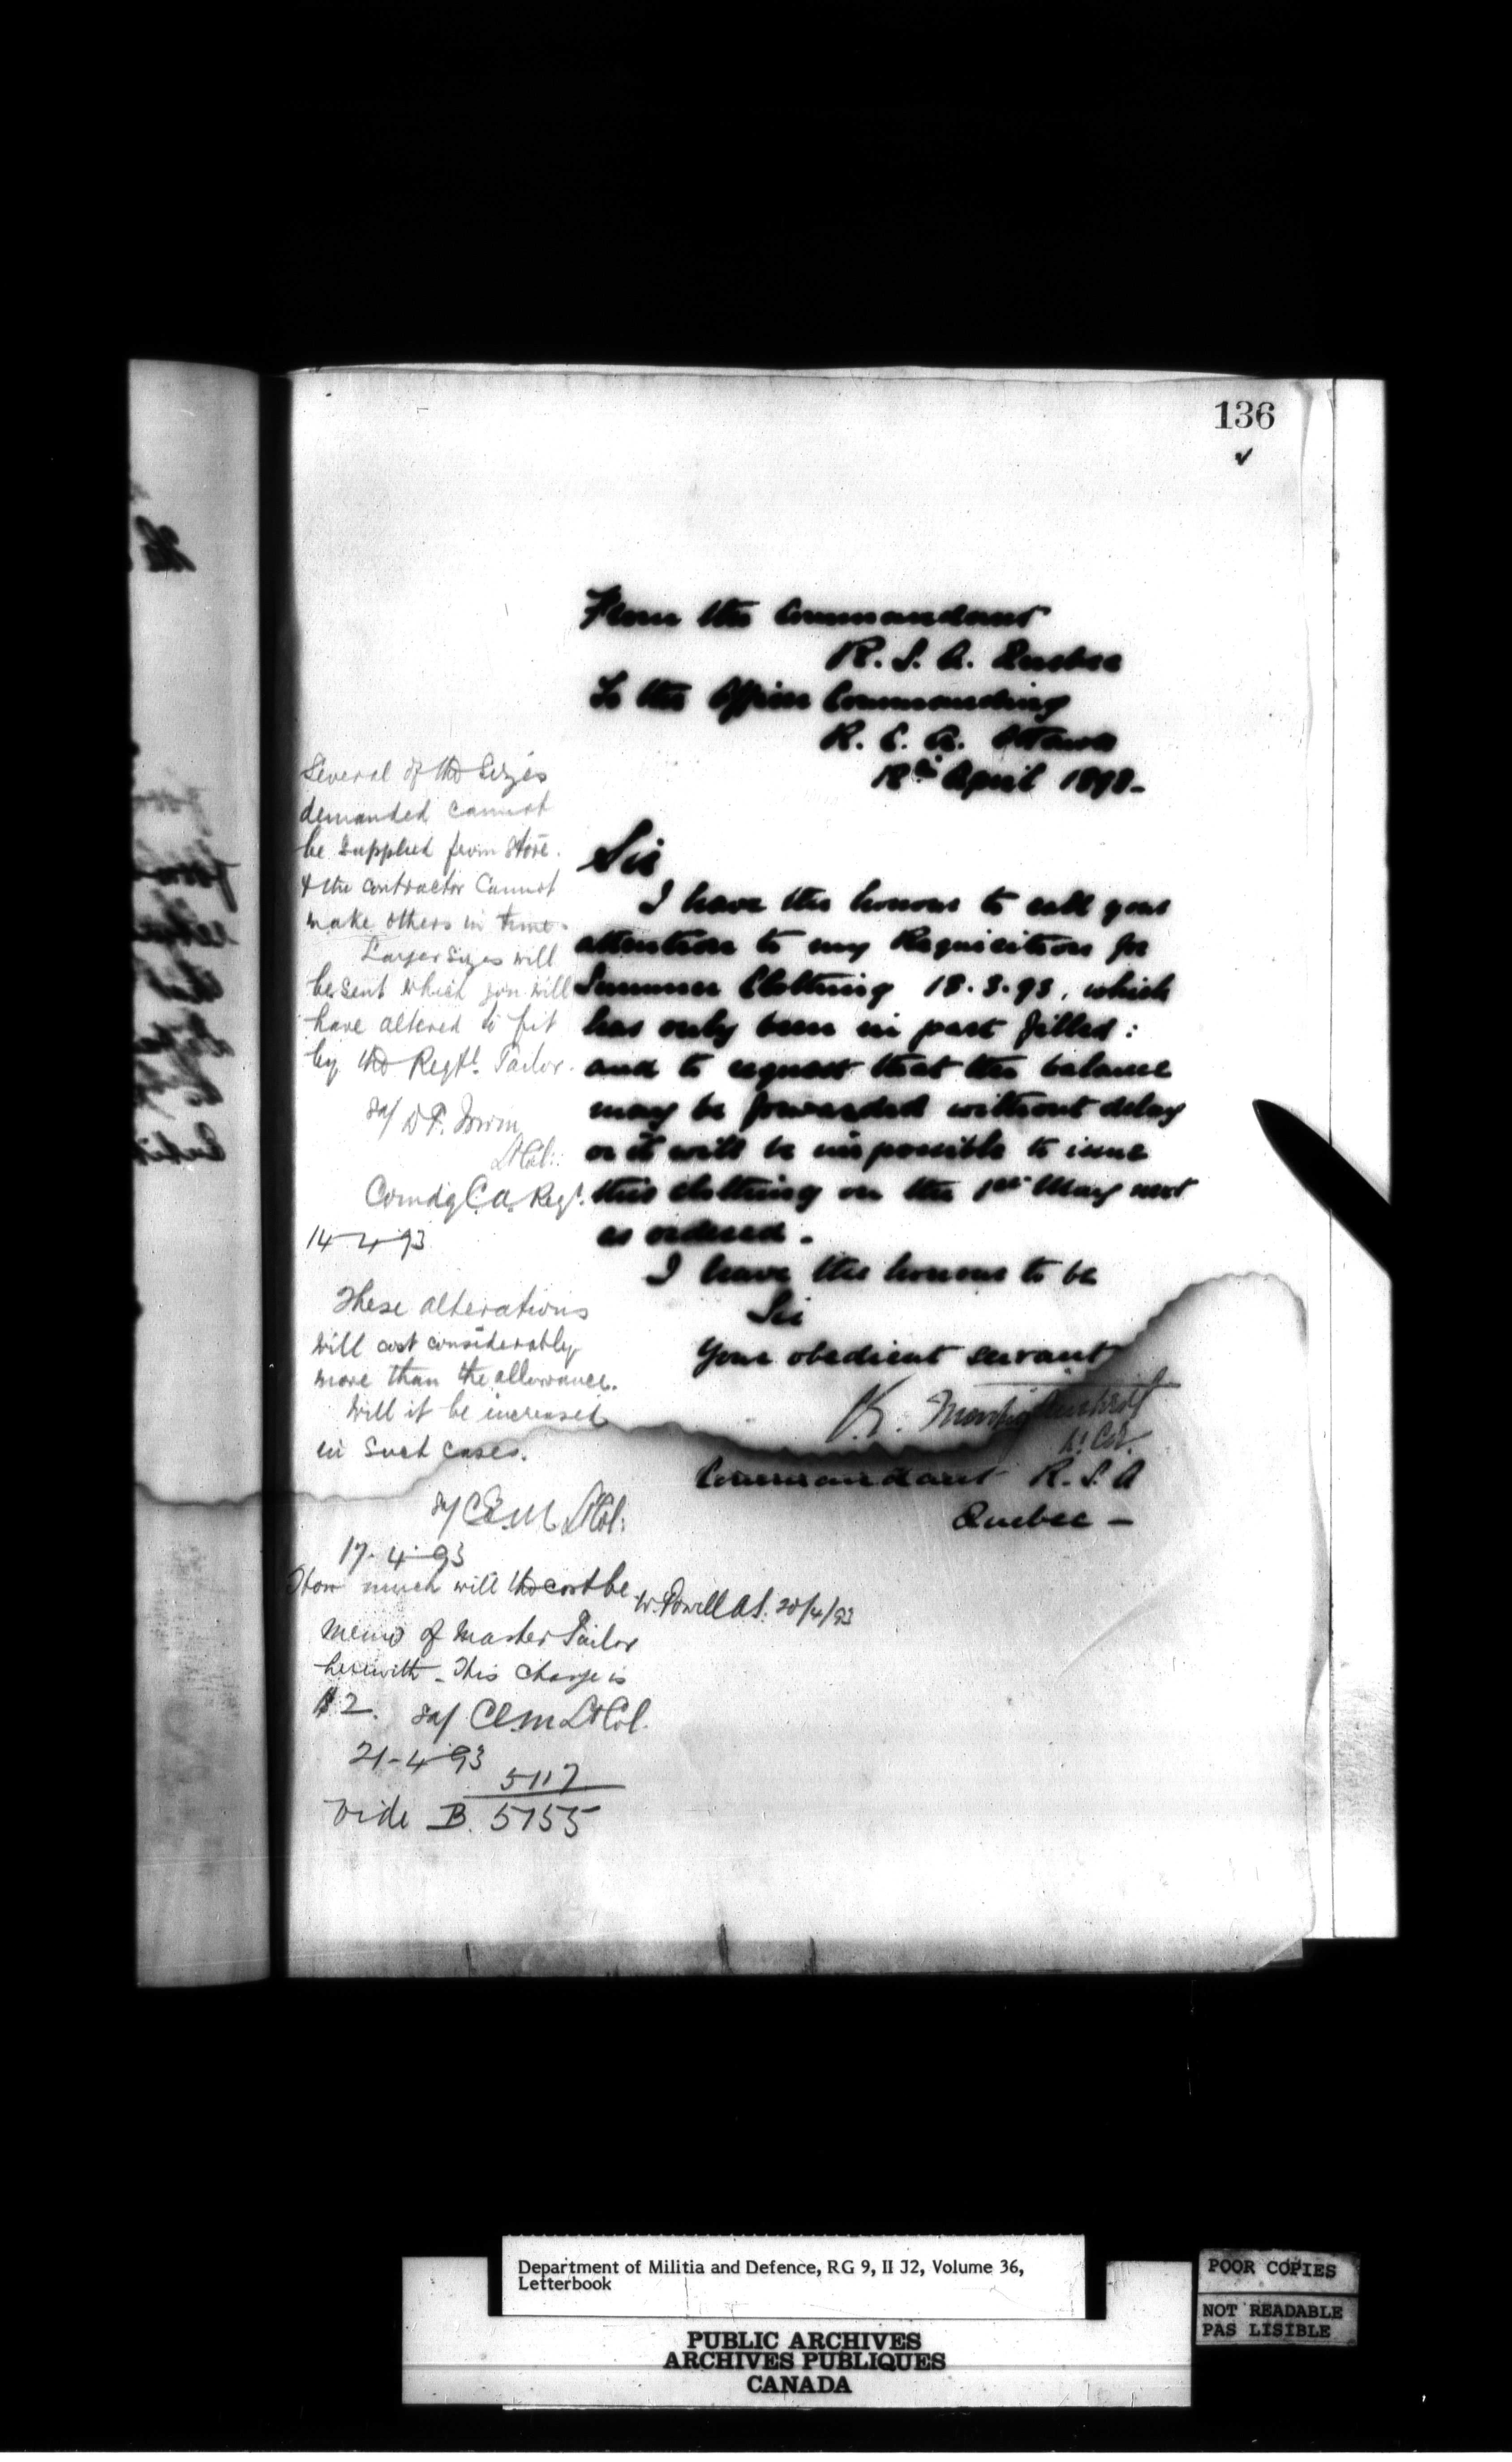 136
From the Commandant
R. S. A. Quebec
To the Officer Commanding
R. C. A. Ottawa
April
Sir
I have the honour to call your
attention to my Requisition for
Summer Clothing 18.3.93, which
has only been in part filled:
and to request that the balance
may be forwarded without delay
or it will be impossible to issue
this clothing on the 1st May next
as ordered.
I have the honour to be
Sir
Your obedient servant
Lt. Col.
Commandant R. S. A
Quebec –
Several of the Sizes
demanded cannot
be supplied from Store.
& the contractor Cannot
make others in time.
Larger sizes will
be sent which you will
have altered to fit
by the Regtl. Tailor.
D. T. Irwin
Lt Col:
Comdg C.A. Regt.
14-4-93
These alterations
will cost considerably
more than the allowance.
Will it be increased
in Such cases.
C.E.M. Lt Col:
17-4-93
How much will the cost be W. Powell A.G. 20/4/93
Memo of Master Tailor
herewith - This charge is
$2. C.E.M Lt Col.
21-4-93
5117
Vide B. 5755
Department of Militia and Defence, RG 9, II J2, Volume 36,
Letterbook
PUBLIC ARCHIVES
ARCHIVES PUBLIQUES
CANADA
POOR COPIES
NOT READABLE
PAS LISIBLE